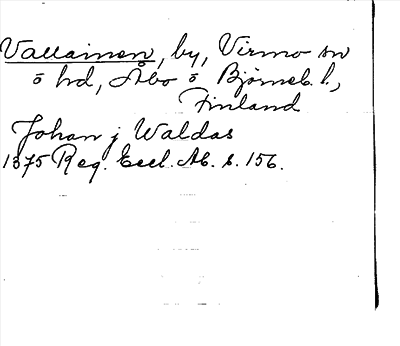 Vallainen, by, Virmo sn
o hd, Åbo o Bjørneb. l.,
Finland
Johan j Waldas
1375 Reg. Eccl. Ab. s. 156.